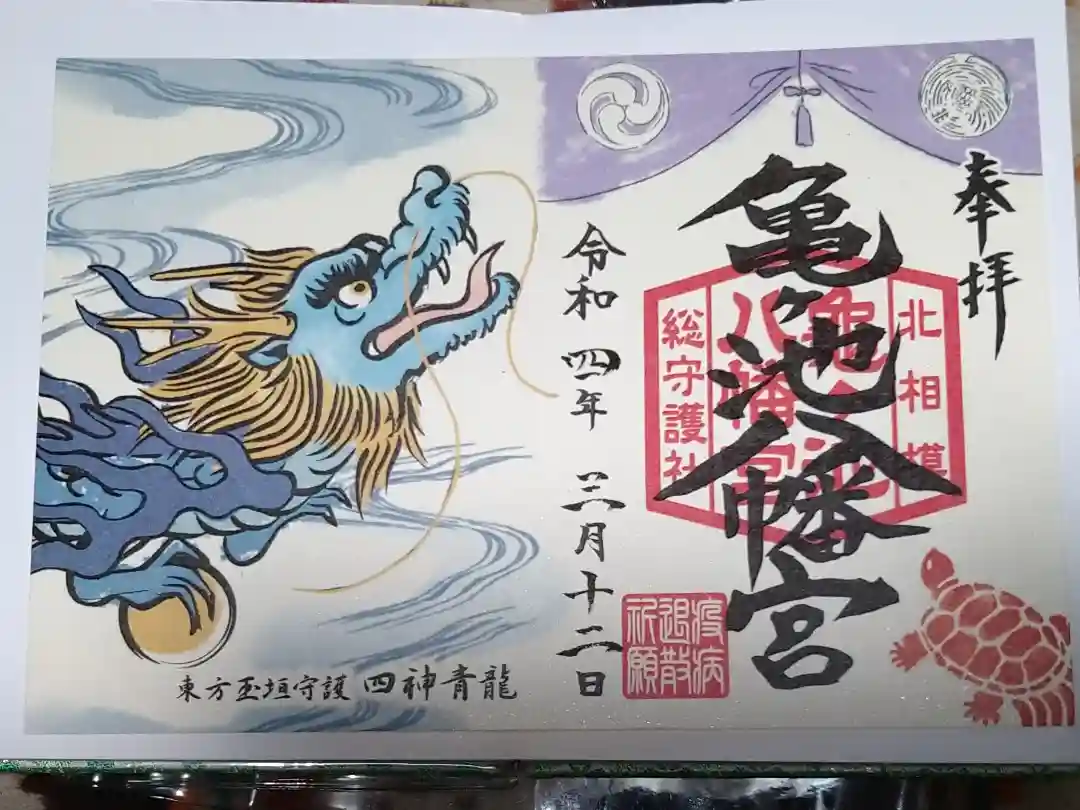 奉拝
亀ヶ池八幡宮
北相模
亀ヶ池
八幡宮
総守護社
疫病
退散
祈願
令和四年三月十二日
東方玉垣守護 四神青龍